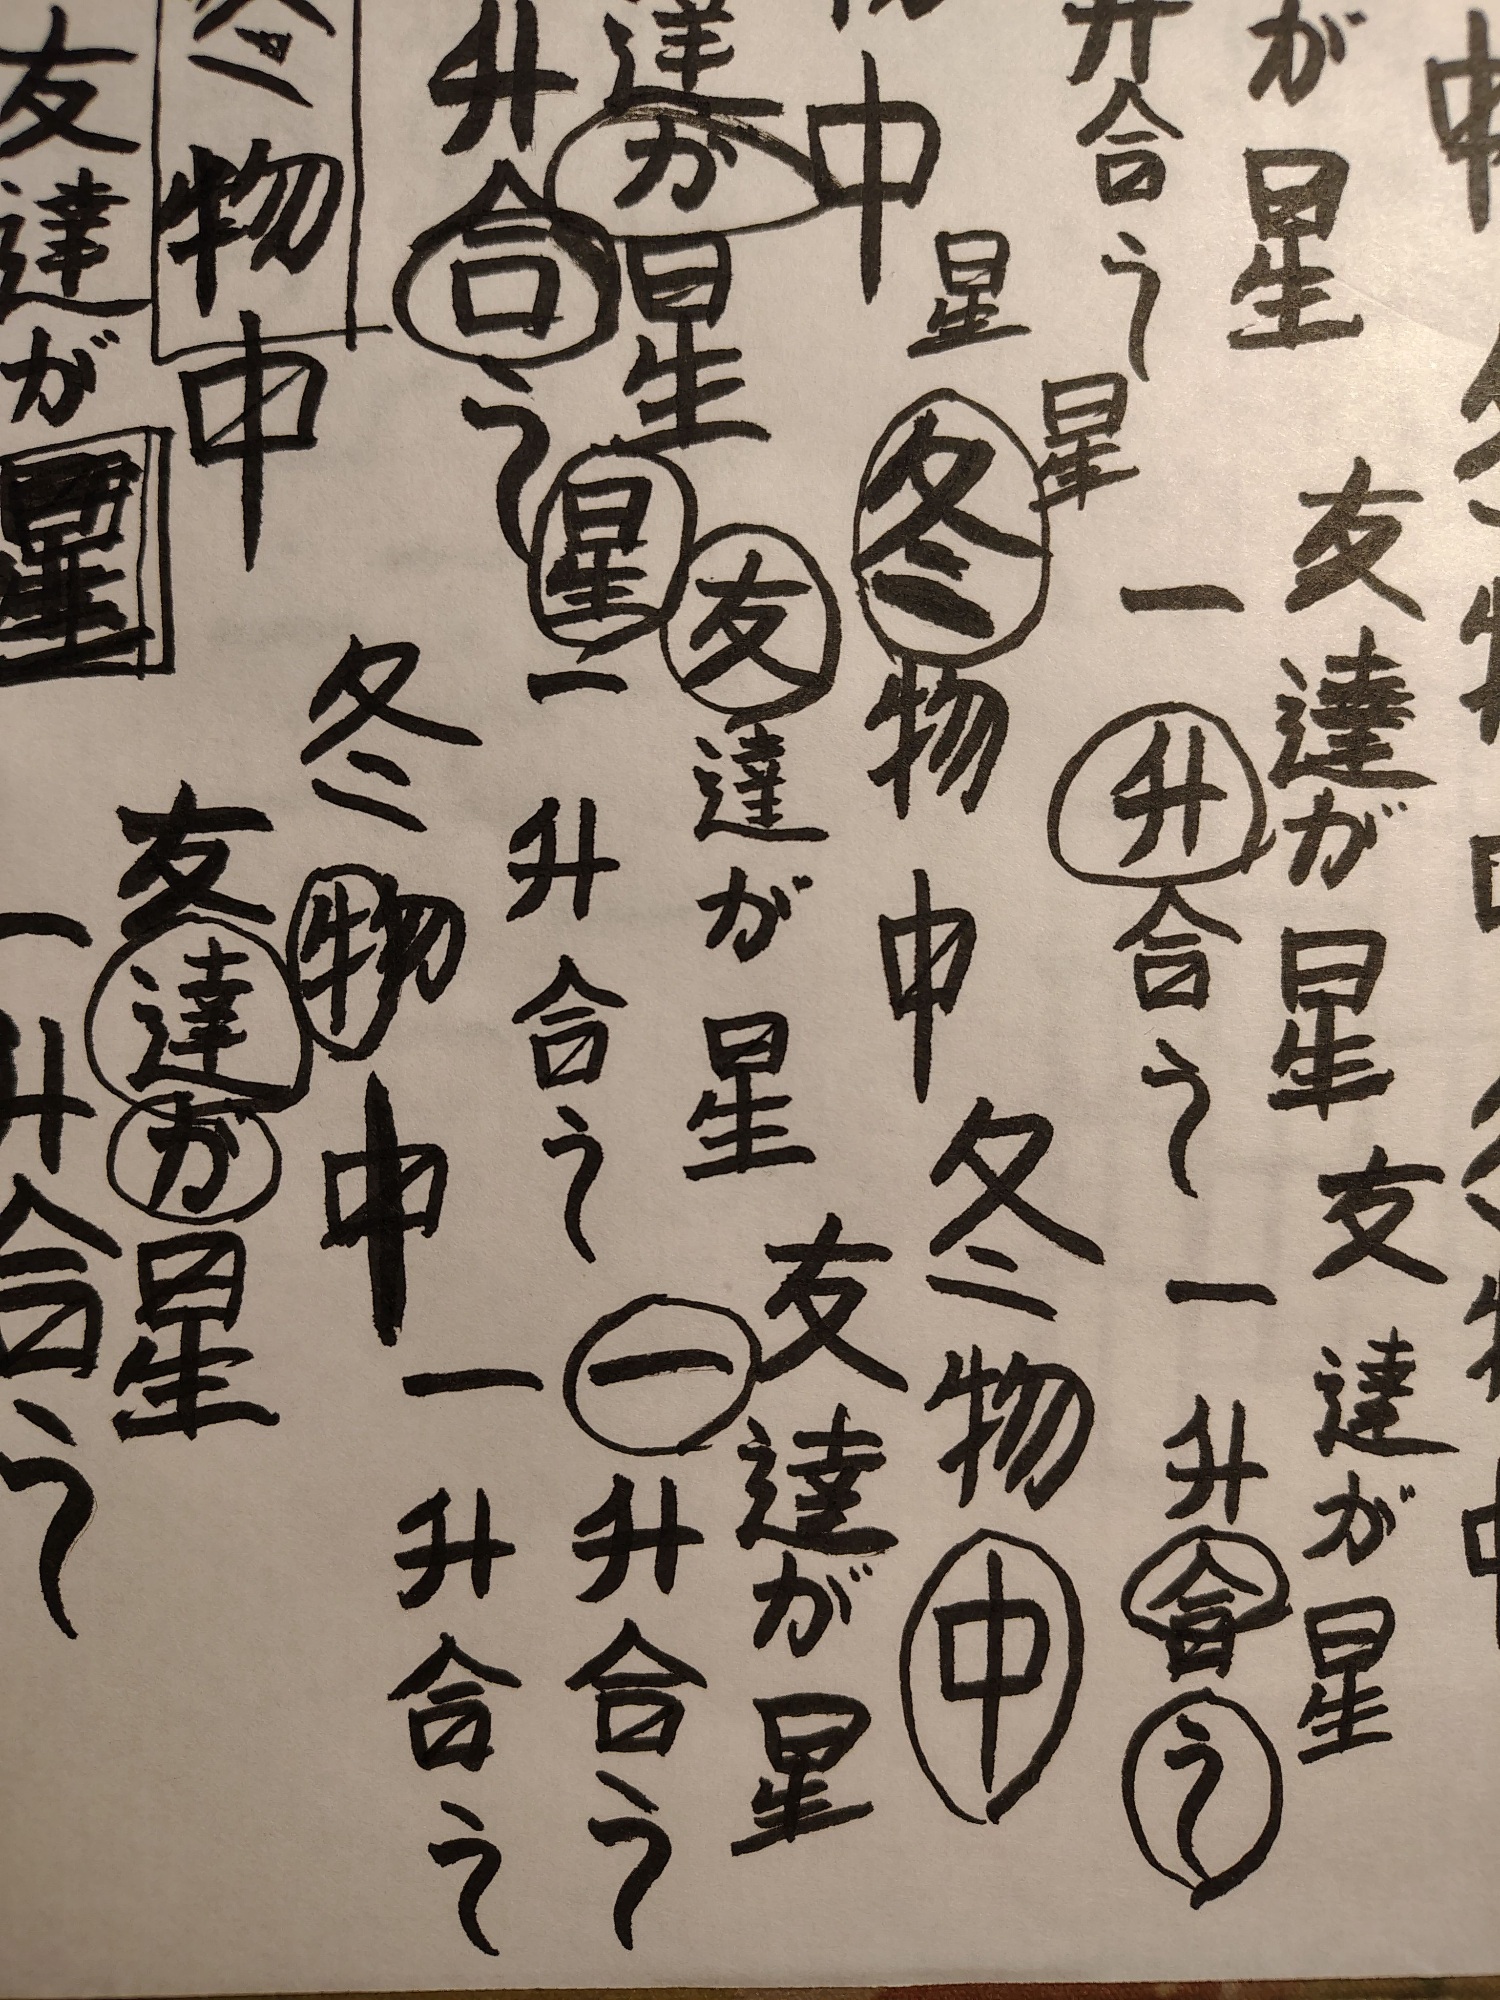 中
冬物中
冬物中
が星
友達が星
友達が星
升合う
一升合う
一升合う
中
星
星
冬物中
冬物中
達が星
友達が星
友達が星
升合う
星
一升合う
一升合う
冬物中
冬物中
一升合う
友達が星
友達が星
一升合う